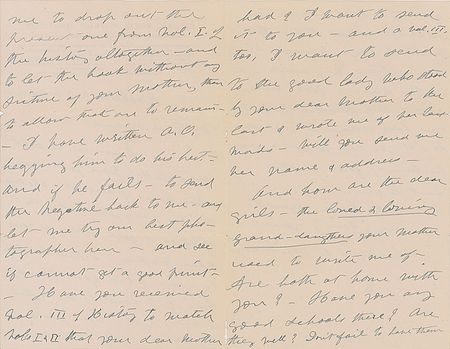 me to drop out the
present one from vol. I. of
the history altogether - and
to let the book without any
picture of your mother, than
to allow that one to remain -
- I have written A.C.
begging him to do his best -
and if he fails - to send
the negative back to me - and
let me try our best pho-
tographer here - and see
if cannot get a good print -
- Have you received
vol. III of History to match
vols I & II that your dear mother
had? I want to send
it to you - and a vol. III.
too, I want to send
to the good lady who stood
by your dear mother to the
last & wrote me of her last
words - will you send me
her name & address -
And how are the dear
girls - the loved & loving
grand-daughters your mother
used to write me of -
Are both at home with
you? - Have you any
good schools there? Are
they well? Don't fail to have them